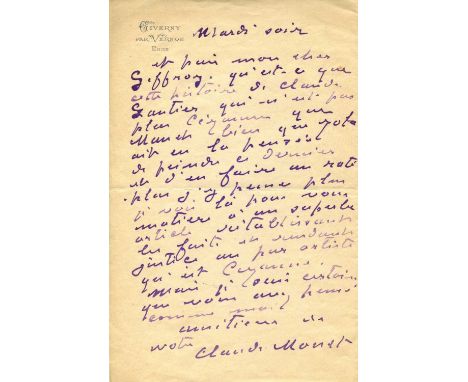 GIVERNY
PAR VERNON
EURE
Mardi soir
et puis mon cher
Geffroy, qu'est-ce que
cette histoire de Claude
Lantier qui n'est pas
plus Cézanne que
Manet bien que Zola
ait eu la pensée
de peindre ce dernier
et d'en faire un raté
plus j'y pense plus
je vois là pour vous
matière à un superbe
article rétablissant
les faits en rendant
justice au pur artiste
qu'est Cezanne.
Mais je suis certain
que vous avez pensé
comme moi
amitiés de
votre
Claude Monet